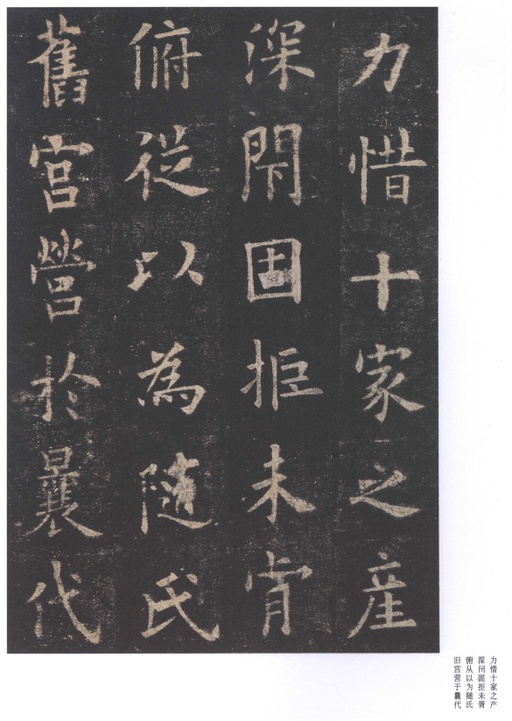 力惜十家之產
深閇固拒未肯
俯從以為隨氏
舊宮營於曩代
力惜十家之产
深闭固拒未肯
俯从以为随氏
旧宫营于曩代